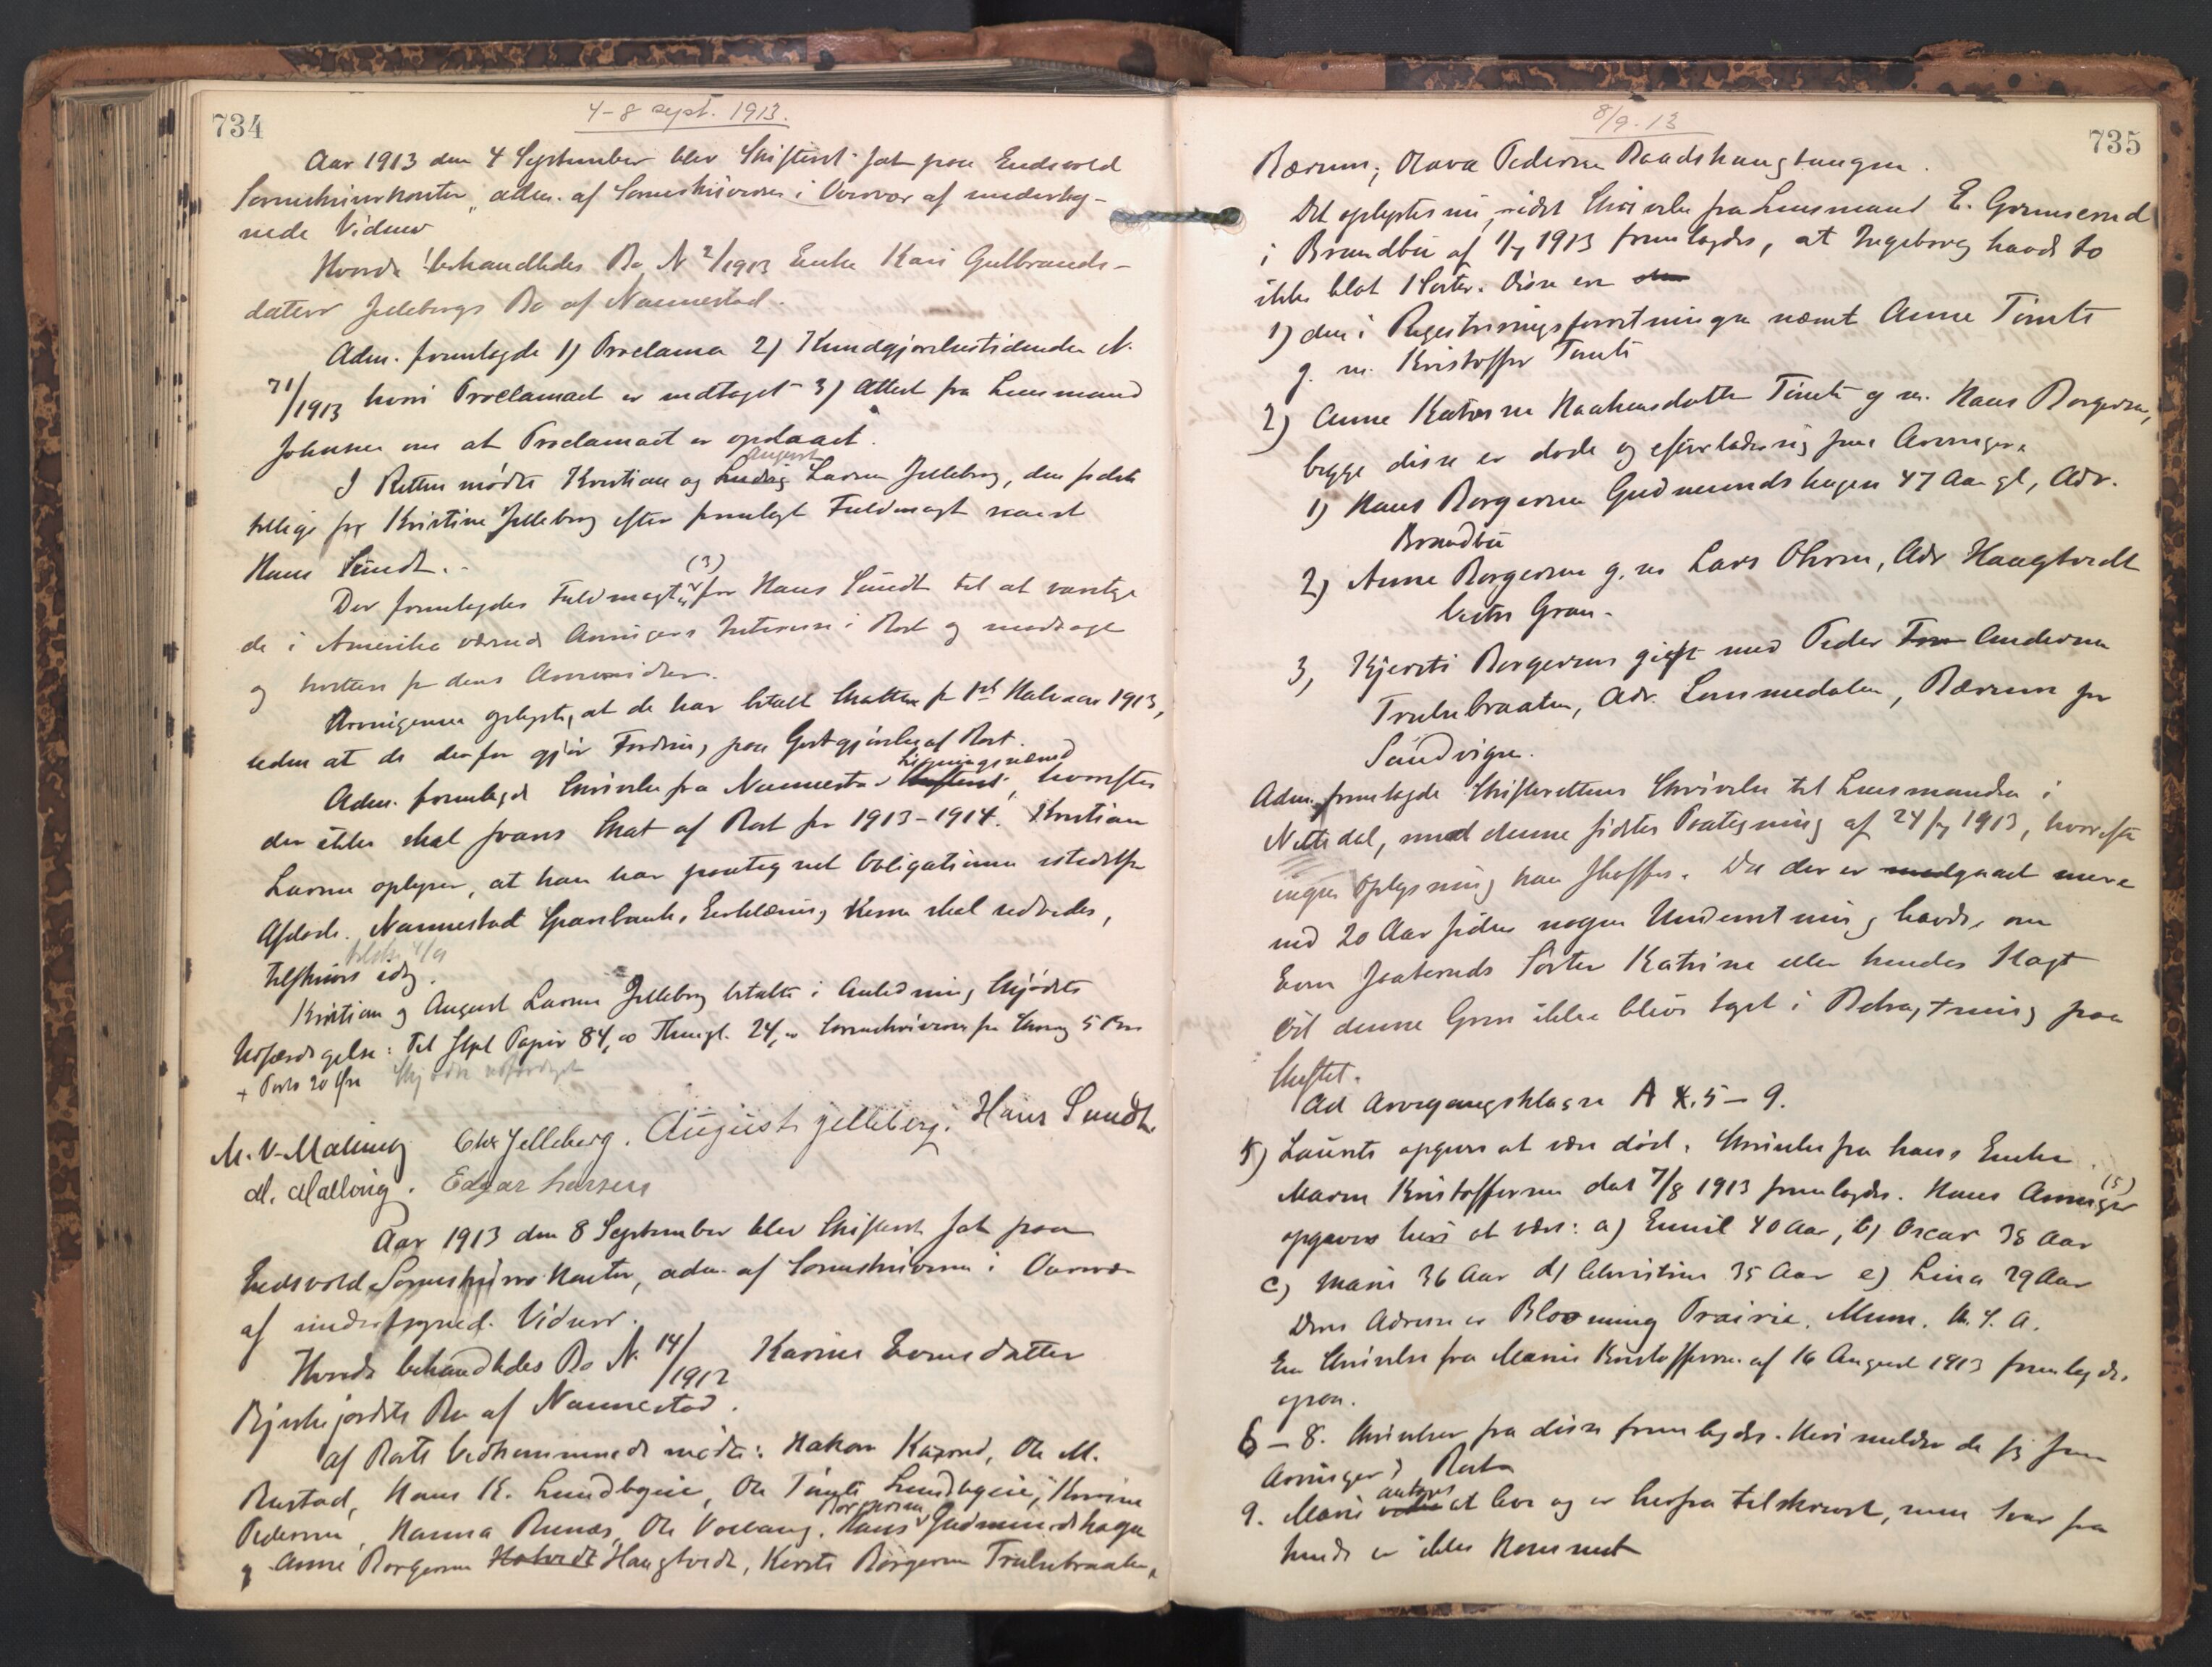 734
4-8 sept. 1913.
Aar 1913 den 4 September blev Skifteret sat paa Eidsvold
Sorenskriverkontor, adm. af Sorenskriveren i Overvær af underteg-
nede Vidner
Hvorda behandledes Bo N 2/1913 Enke Kari Gulbrands-
datter Jellebergs Bo af Nannestad.
Adm. fremlagde 1) Proclama 2) Kundgjørelsestidende N.
71/1913 hvori Proclamaet er indtaget 3) Attest fra Lensmand
Johnsen om at Proclamaet er opslaaet.
August
I Retten mødte Kristian og Ludvig Larsen Jelleberg, den sidste
tillige for Kristine Jelleberg efter fremlagt Fuldmagt samt
Hans Sundt.
(3)
Der fremlagdes Fuldmagter for Hans Sundt til at varetage
de i Amerika værende Arvingers Interesse i Boet og modtage
og kvittere for deres Arvemidler.
Arvingerne oplyste, at de har betalt Skatten for 1ste Halvaar 1913,
uden at de derfor gjør Fordring paa Godtgjørelse af Boet.
Ligningsnævnd
Adm. fremlagde Skrivelse fra Nannestad, hvorefter
der ikke skal svares Skat af Boet for 1913-1914. Kristian
Larsen oplyser, at han har paategnet Obligationen istedetfor
Afdøde. Nannestad Sparebanks Erklæring herom skal udvedes,
tilskr. 4/9
tilskrives idag.
Kristian og August Larsen Jelleberg betalte i Anledning Skjødets
Udfærdigelse: Til Stpl Papir 84,00 Thingl. 24,00 Sorenskriveren for Skrivning 5 Kr
+ Porto 20 Øre Skjødet udfærdiget
M. V. Malling Chr Jelleberg. August Jelleberg. Hans Sundt
M. Malling. Edgar Larsen
Aar 1913 den 8 September blev Skifteret sat paa
Eidsvold Sorenskriverkontor, adm. af Sorenskriveren i Overvær
af undertegnede Vidner.
Hvorda behandledes Bo N. 14/1912 Karine Evensdatter
Bjerkejordets Bo af Nannestad.
Af Boets Vedkommende mødte: Hakon Kaxrud, Ole M.
Rustad, Hans K. Lundbyeie, Ole Tømte Lundbyeie, Karine
Borgersen
Pedersen, Hanna Runæs, Ole Volbang. Hans Gudmundshagen
og Anne Borgersen Hotvedt Haugtvedt, Kersti Borgersen Trulsebraaten,
8/9-13
735
Bærum; Olava Pedersen Raadshaugtangen.
Det oplystes nu, idet Skrivelse fra Lensmand E. Grimsrud
i Brandbu af 1/7 1913 fremlagdes, at Ingeborg havde to
ikke blot 1 Søster. Disse er
1) den i Registreringsforretningen nævnt Anne Tømte
g. m. Kristoffer Tømte
2) Anne Katrine Haakensdatter Tømte g m. Hans Borgersen,
begge disse er døde og efterlader sig som Arvinger:
1) Hans Borgersen Gudmundshagen 47 Aar gl, Adr.
Brandbu
2) Anne Borgersen g. m Lars Olsen, Adr Haagtvedt
Vestre Gran.
3, Kjersti Borgersen gift med Peder Andersen
Trulsebraaten, Adr. Lommedalen, Bærum pr
Sandvigen.
Adm. fremlagde Skifterettens Skrivelse til Lensmanden i
Nittedal, med dennes sidstes Paategning af 24/7 1913, hvorefter
ingen Oplysning kan skaffes. Da der er medgaaet mere
end 20 Aar siden nogen Underretning havdes om
Even Jaaberuds Søster Katrine eller hendes Slægt
vil denne Gren ikke blive taget i Betragtning paa
Skiftet.
Ad Arvegangsklasse A 4. 5-9.
5) Laurits opgives at være død. Skrivelse fra hans Enke
Maren Kristoffersen dat 7/8 1913 fremlagdes. Hans Arvinger (5)
opgaves heri at være: a) Emmil 40 Aar, b) Oscar 38 Aar
c) Marie 36 Aar d) Christine 35 Aar e) Lina 29 Aar
Deres Adresse er Blooming Prairie. Minn. U. S. A.
En Skrivelse fra Maren Kristoffersen af 16 August 1913 fremlagdes
ogsaa.
6-8. Skrivelser fra disse fremlagdes. Heri melder de sig som
Arvinger i Boet
antages
9. Marie at leve og er herfra tilskrevet, men Svar fra
hende er ikke kommet